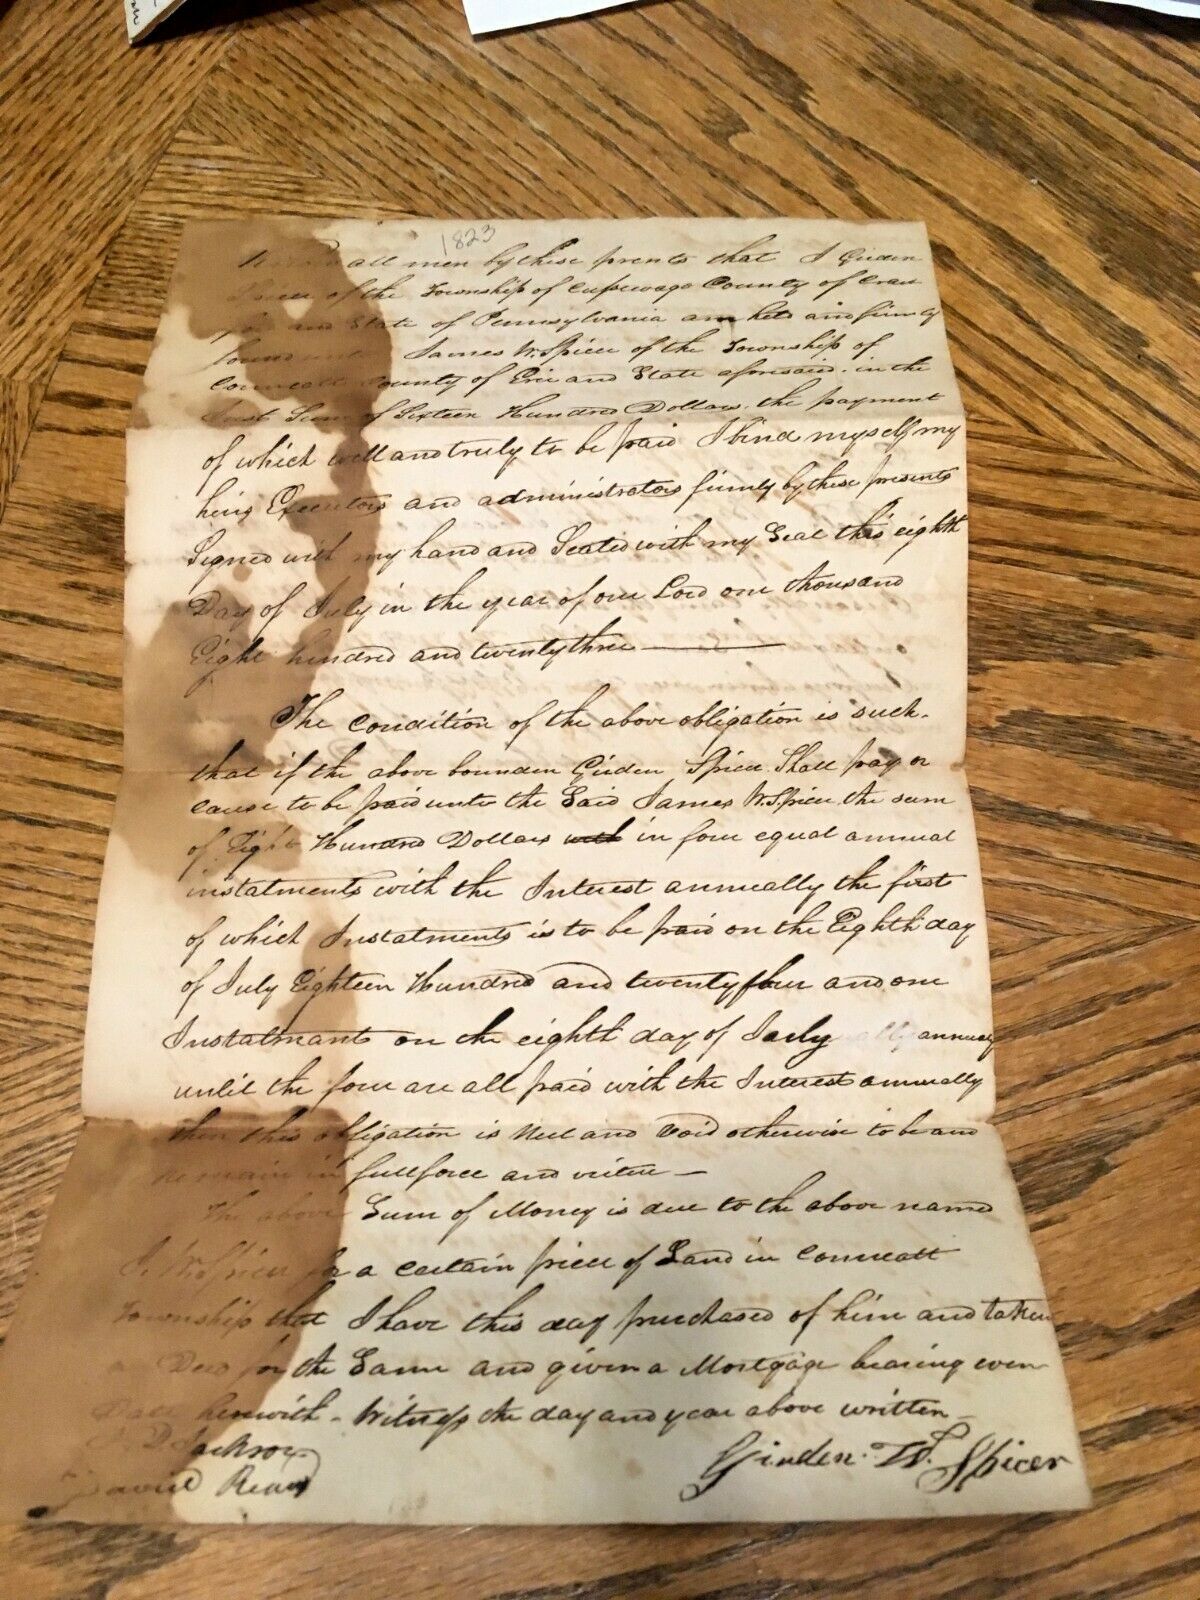 1823
all men by these prents that I Girden
Spicer of the Township of Cusewago County of Craw
ford and State of Pennsylvania am held and firmly
bound unto James W. Spicer of the Township of
Conneatt County of Erie and State aforesaid in the
Just Sum of Sixteen Hundred Dollars, the payment
of which well and truly to be paid I bind myself my
heirs Executors and administrators firmly by these presents
Signed with my hand and Sealed with my Seal this eighth
Day of July in the year of our Lord one thousand
Eight hundred and twenty three
The Condition of the above obligation is such.
that if the above bounden Girden Spicer Shall pay or
cause to be paid unto the Said James W. Spicer the sum
of Eight Hundred Dollars in four equal annual
instalments with the Interest annually the first
of which Instalments is to be paid on the Eighth day
of July Eighteen Hundred and twenty four and one
Instalmants on the eighth day of July annualy
until the four are all paid with the Interest annually
then this obligation is Null and Void otherwise to be and
remain in full force and virtue —
The above Sum of Money is due to the above named
J. W. Spicer for a certain piece of Land in Conneatt
Township that I have this day purchased of him and taken
a Deed for the Same and given a Mortgage bearing even
Date herewith - Witness the day and year above written
Jackson
David Girden. W. Spicer